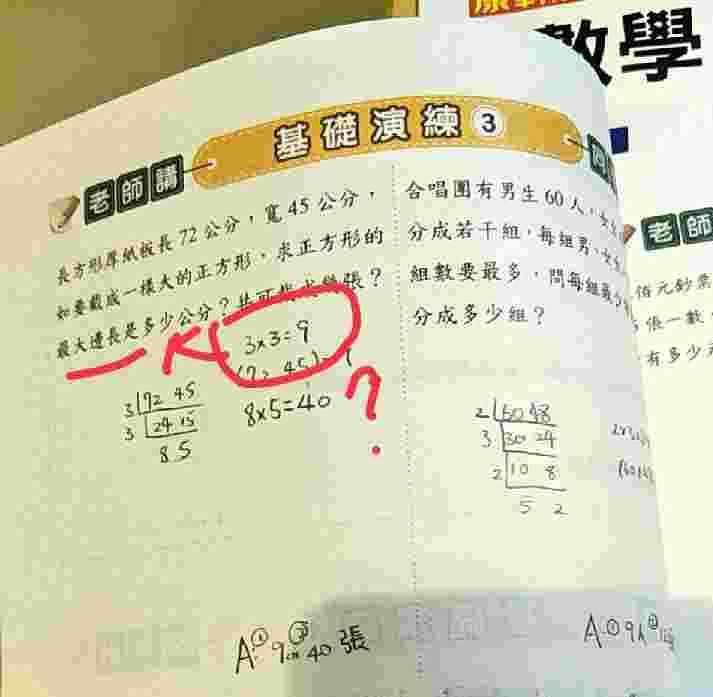 數學
基礎演練 3
老師講
長方形厚紙板長 72 公分，寬 45 公分，
如要裁成一樣大的正方形，求正方形的
最大邊長是多少公分？共可
張？
3×3=9
8×5=40
?
3 72 45
3 24 15
8 5
A: ① 9cm ② 40 張
合唱團有男生 60 人，
分成若干組，每組男、女
組數要最多，問每組最少
分成多少組？
2 60 48
3 30 24
2 10 8
5 2
老師
佰元鈔票
張一數，
有多少